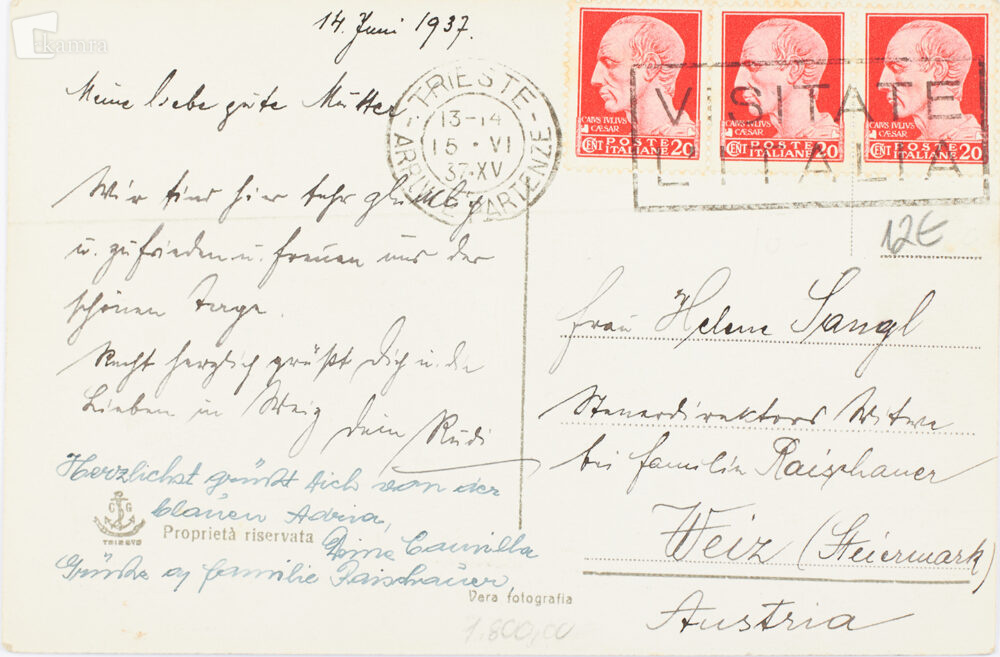 kamra
14. Juni 1937.
Meine liebe gute Mutter
Wir sind hier sehr glücklich
u. zufrieden u. freuen uns der
schönen Tage.
Recht herzlich grüßt Dich u. die
Lieben in Weiz
Dein Rudi
Herzlichst grüßt Dich von der
blauen Adria,
Deine Camilla
Grüße a/ Familie Raischauer
C G
TRIESTE
Proprietà riservata
Vera fotografia
1.800,00
TRIESTE
13-14
15 · VI
37·XV
ARRIVI E PARTENZE
VISITATE
L'ITALIA
CAIVS IVLIVS
CÆSAR
CENT POSTE ITALIANE 20
CAIVS IVLIVS
CÆSAR
CENT POSTE ITALIANE 20
CAIVS IVLIVS
CÆSAR
CENT POSTE ITALIANE 20
12€
Frau Helene Sangl
Steuerdirektors Witwe
bei Familie Raischauer
Weiz (Steiermark)
Austria